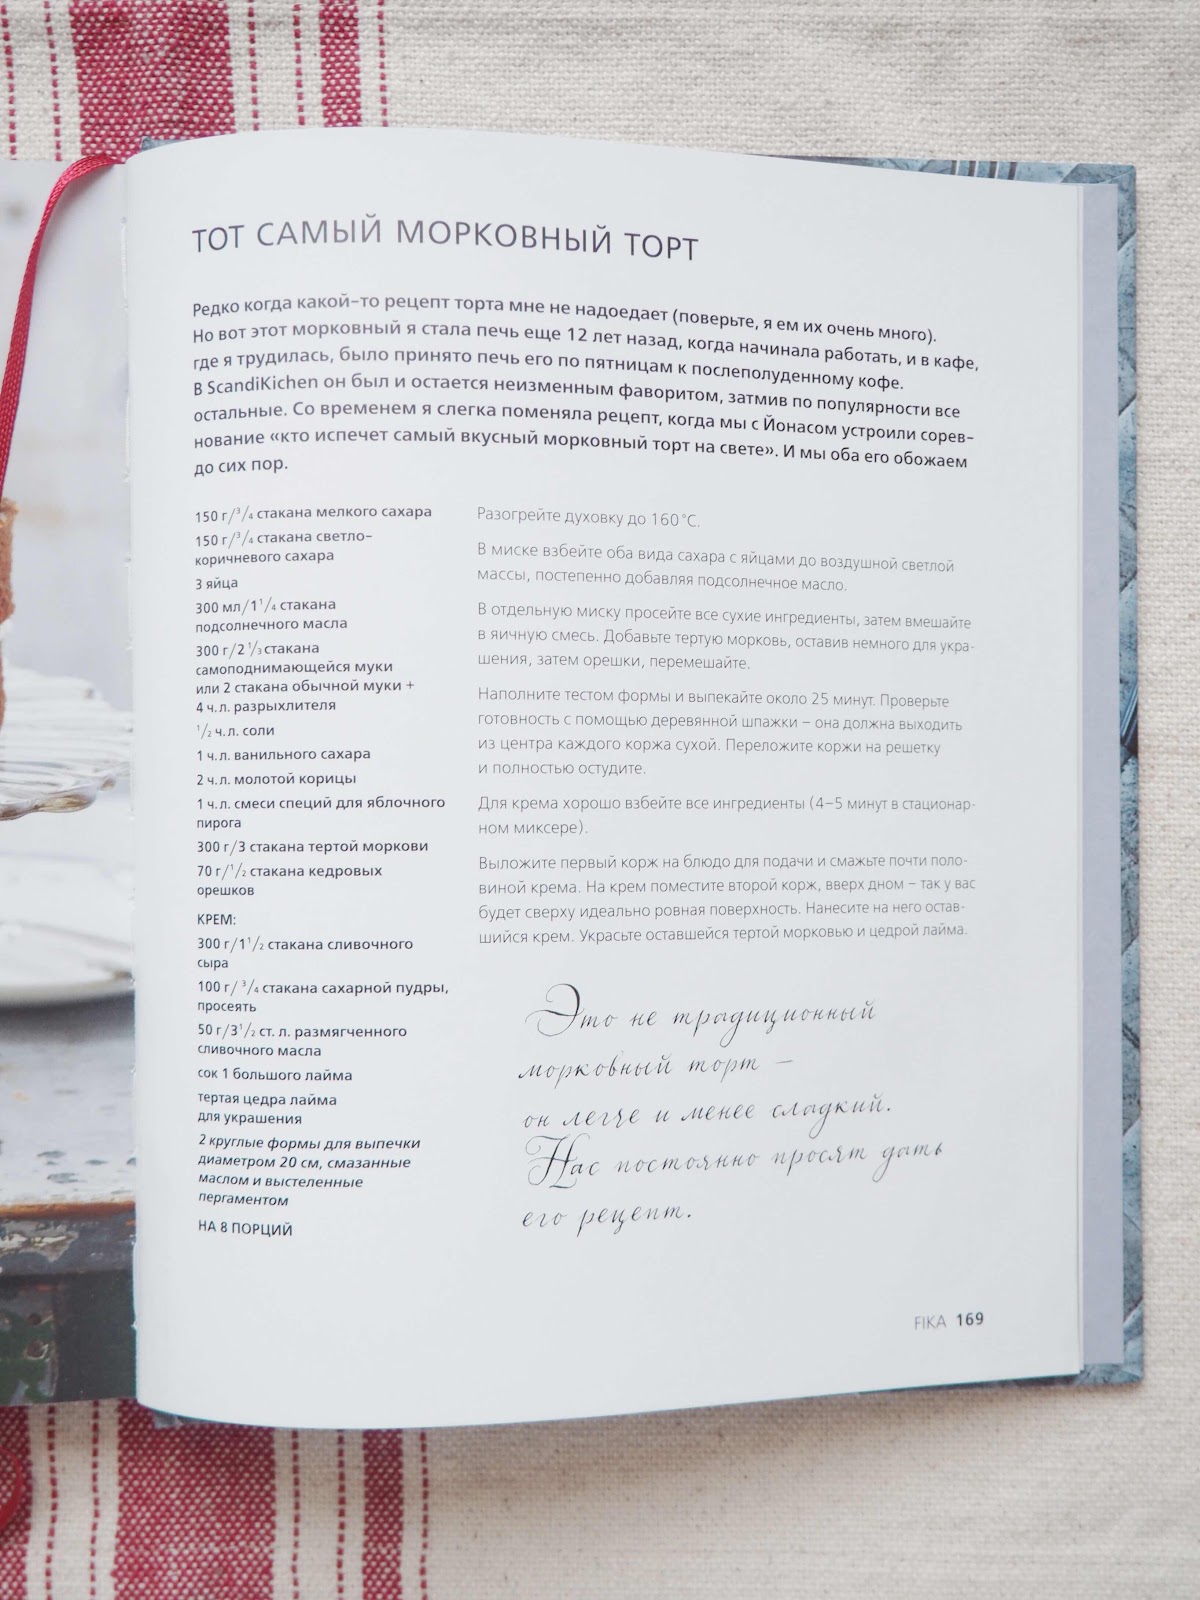 ТОТ САМЫЙ МОРКОВНЫЙ ТОРТ
Редко когда какой-то рецепт торта мне не надоедает (поверьте, я ем их очень много).
Но вот этот морковный я стала печь еще 12 лет назад, когда начинала работать, и в кафе,
где я трудилась, было принято печь его по пятницам к послеполуденному кофе.
В ScandiKichen он был и остается неизменным фаворитом, затмив по популярности все
остальные. Со временем я слегка поменяла рецепт, когда мы с Йонасом устроили сорев-
нование «кто испечет самый вкусный морковный торт на свете». И мы оба его обожаем
до сих пор.
150 г/3/4 стакана мелкого сахара
150 г/3/4 стакана светло-
коричневого сахара
3 яйца
300 мл/1 1/4 стакана
подсолнечного масла
300 г/2 1/3 стакана
самоподнимающейся муки
или 2 стакана обычной муки +
4 ч. л. разрыхлителя
1/2 ч. л. соли
1 ч. л. ванильного сахара
2 ч. л. молотой корицы
1 ч. л. смеси специй для яблочного
пирога
300 г/3 стакана тертой моркови
70 г/1/2 стакана кедровых
орешков
КРЕМ:
300 г/1 1/2 стакана сливочного
сыра
100 г/ 3/4 стакана сахарной пудры,
просеять
50 г/3 1/2 ст. л. размягченного
сливочного масла
сок 1 большого лайма
тертая цедра лайма
для украшения
2 круглые формы для выпечки
диаметром 20 см, смазанные
маслом и выстеленные
пергаментом
НА 8 ПОРЦИЙ
Разогрейте духовку до 160 °С.
В миске взбейте оба вида сахара с яйцами до воздушной светлой
массы, постепенно добавляя подсолнечное масло.
В отдельную миску просейте все сухие ингредиенты, затем вмешайте
в яичную смесь. Добавьте тертую морковь, оставив немного для укра-
шения, затем орешки, перемешайте.
Наполните тестом формы и выпекайте около 25 минут. Проверьте
готовность с помощью деревянной шпажки – она должна выходить
из центра каждого коржа сухой. Переложите коржи на решетку
и полностью остудите.
Для крема хорошо взбейте все ингредиенты (4–5 минут в стационар-
ном миксере).
Выложите первый корж на блюдо для подачи и смажьте почти поло-
виной крема. На крем поместите второй корж, вверх дном – так у вас
будет сверху идеально ровная поверхность. Нанесите на него остав-
шийся крем. Украсьте оставшейся тертой морковью и цедрой лайма.
Это не традиционный
морковный торт –
он легче и менее сладкий.
Нас постоянно просят дать
его рецепт.
FIKA 169